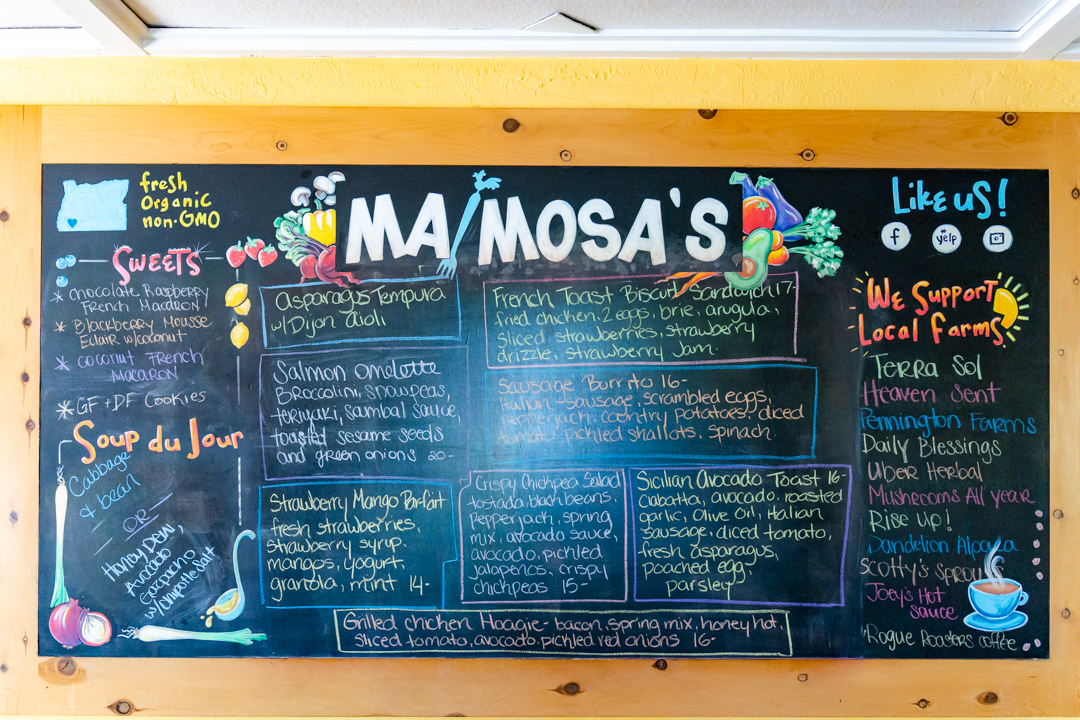 fresh
Organic
non-GMO
SWEETS
* chocolate Raspberry
French Macaron
* Blackberry Mousse
Eclair w/coconut
* coconut French
Macaron
* GF + DF Cookies
Soup du Jour
Cabbage
& bean
-OR-
Honey Dew,
Avocado
Gazpacho
w/chipotle salt
MA/MOSA'S
Asparagus Tempura
w/Dijon aioli
Salmon omelette
Broccolini, Snowpeas,
teriyaki, sambal sauce,
toasted sesame seeds
and green onions 20-
Strawberry Mango Parfait
fresh strawberries,
strawberry syrup,
mangos, yogurt,
granola, mint 14-
French Toast Biscuit Sandwich 17-
fried chicken, 2 eggs, brie, arugula,
sliced strawberries, strawberry
drizzle, strawberry Jam.
Sausage Burrito 16-
Italian sausage, scrambled eggs,
pepperjack, country potatoes, diced
tomato, pickled shallots, spinach.
Crispy Chickpea Salad
tostada, black beans,
Pepperjack, spring
mix, avocado sauce,
avocado, pickled
jalapenos, crispy
chickpeas 15-
Sicilian Avocado Toast 16-
ciabatta, avocado, roasted
garlic, Olive Oil, Italian
sausage, diced tomato,
fresh asparagus,
poached egg,
parsley
Grilled chicken Hoagie - bacon, spring mix, honey hot,
sliced tomato, avocado, pickled red onions 16-
Like us!
f yelp
We Support
Local Farms
Terra Sol
Heaven Sent
Pennington Farms
Daily Blessings
Uber Herbal
Mushrooms All year
Rise up!
Dandelion Alpaca
Scotty's Sprouts
Joey's Hot
sauce
Rogue Roasters coffee